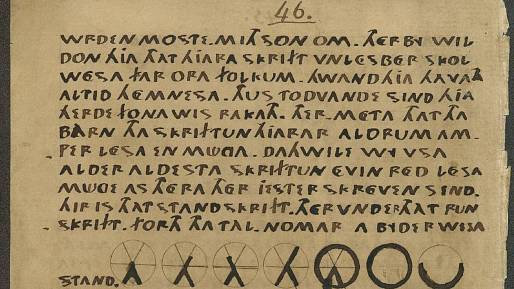 46.
WRDEN MOSTE. MITH SON OM. THERBY WIL
DON HIA THAT HIARA SKRIFT VNLESBER SKOL
WESA FAR ORA FOLKUM. HWAND HIA HAVATH
ALTID HEMNESA. THUS TODVANDE SIND HIA
HERDE FONA WIS RAKATH. THER. META THAT THA
BARN THA SKRIFTUN HIARAR ALDRUM AM.
PER LESA EN MUGA. DAHWILE WY VSA
ALDER ALDESTA SKRIFTUN EVIN RED LESA
MUGE AS THERA THER IESTER SKREVEN SEND.
HIR IS THAT STAND SKRIFT. THERUNDER THAT RUN
SKRIFT. FORTH THA TAL. NOMAR A BYDER WISA
STAND.